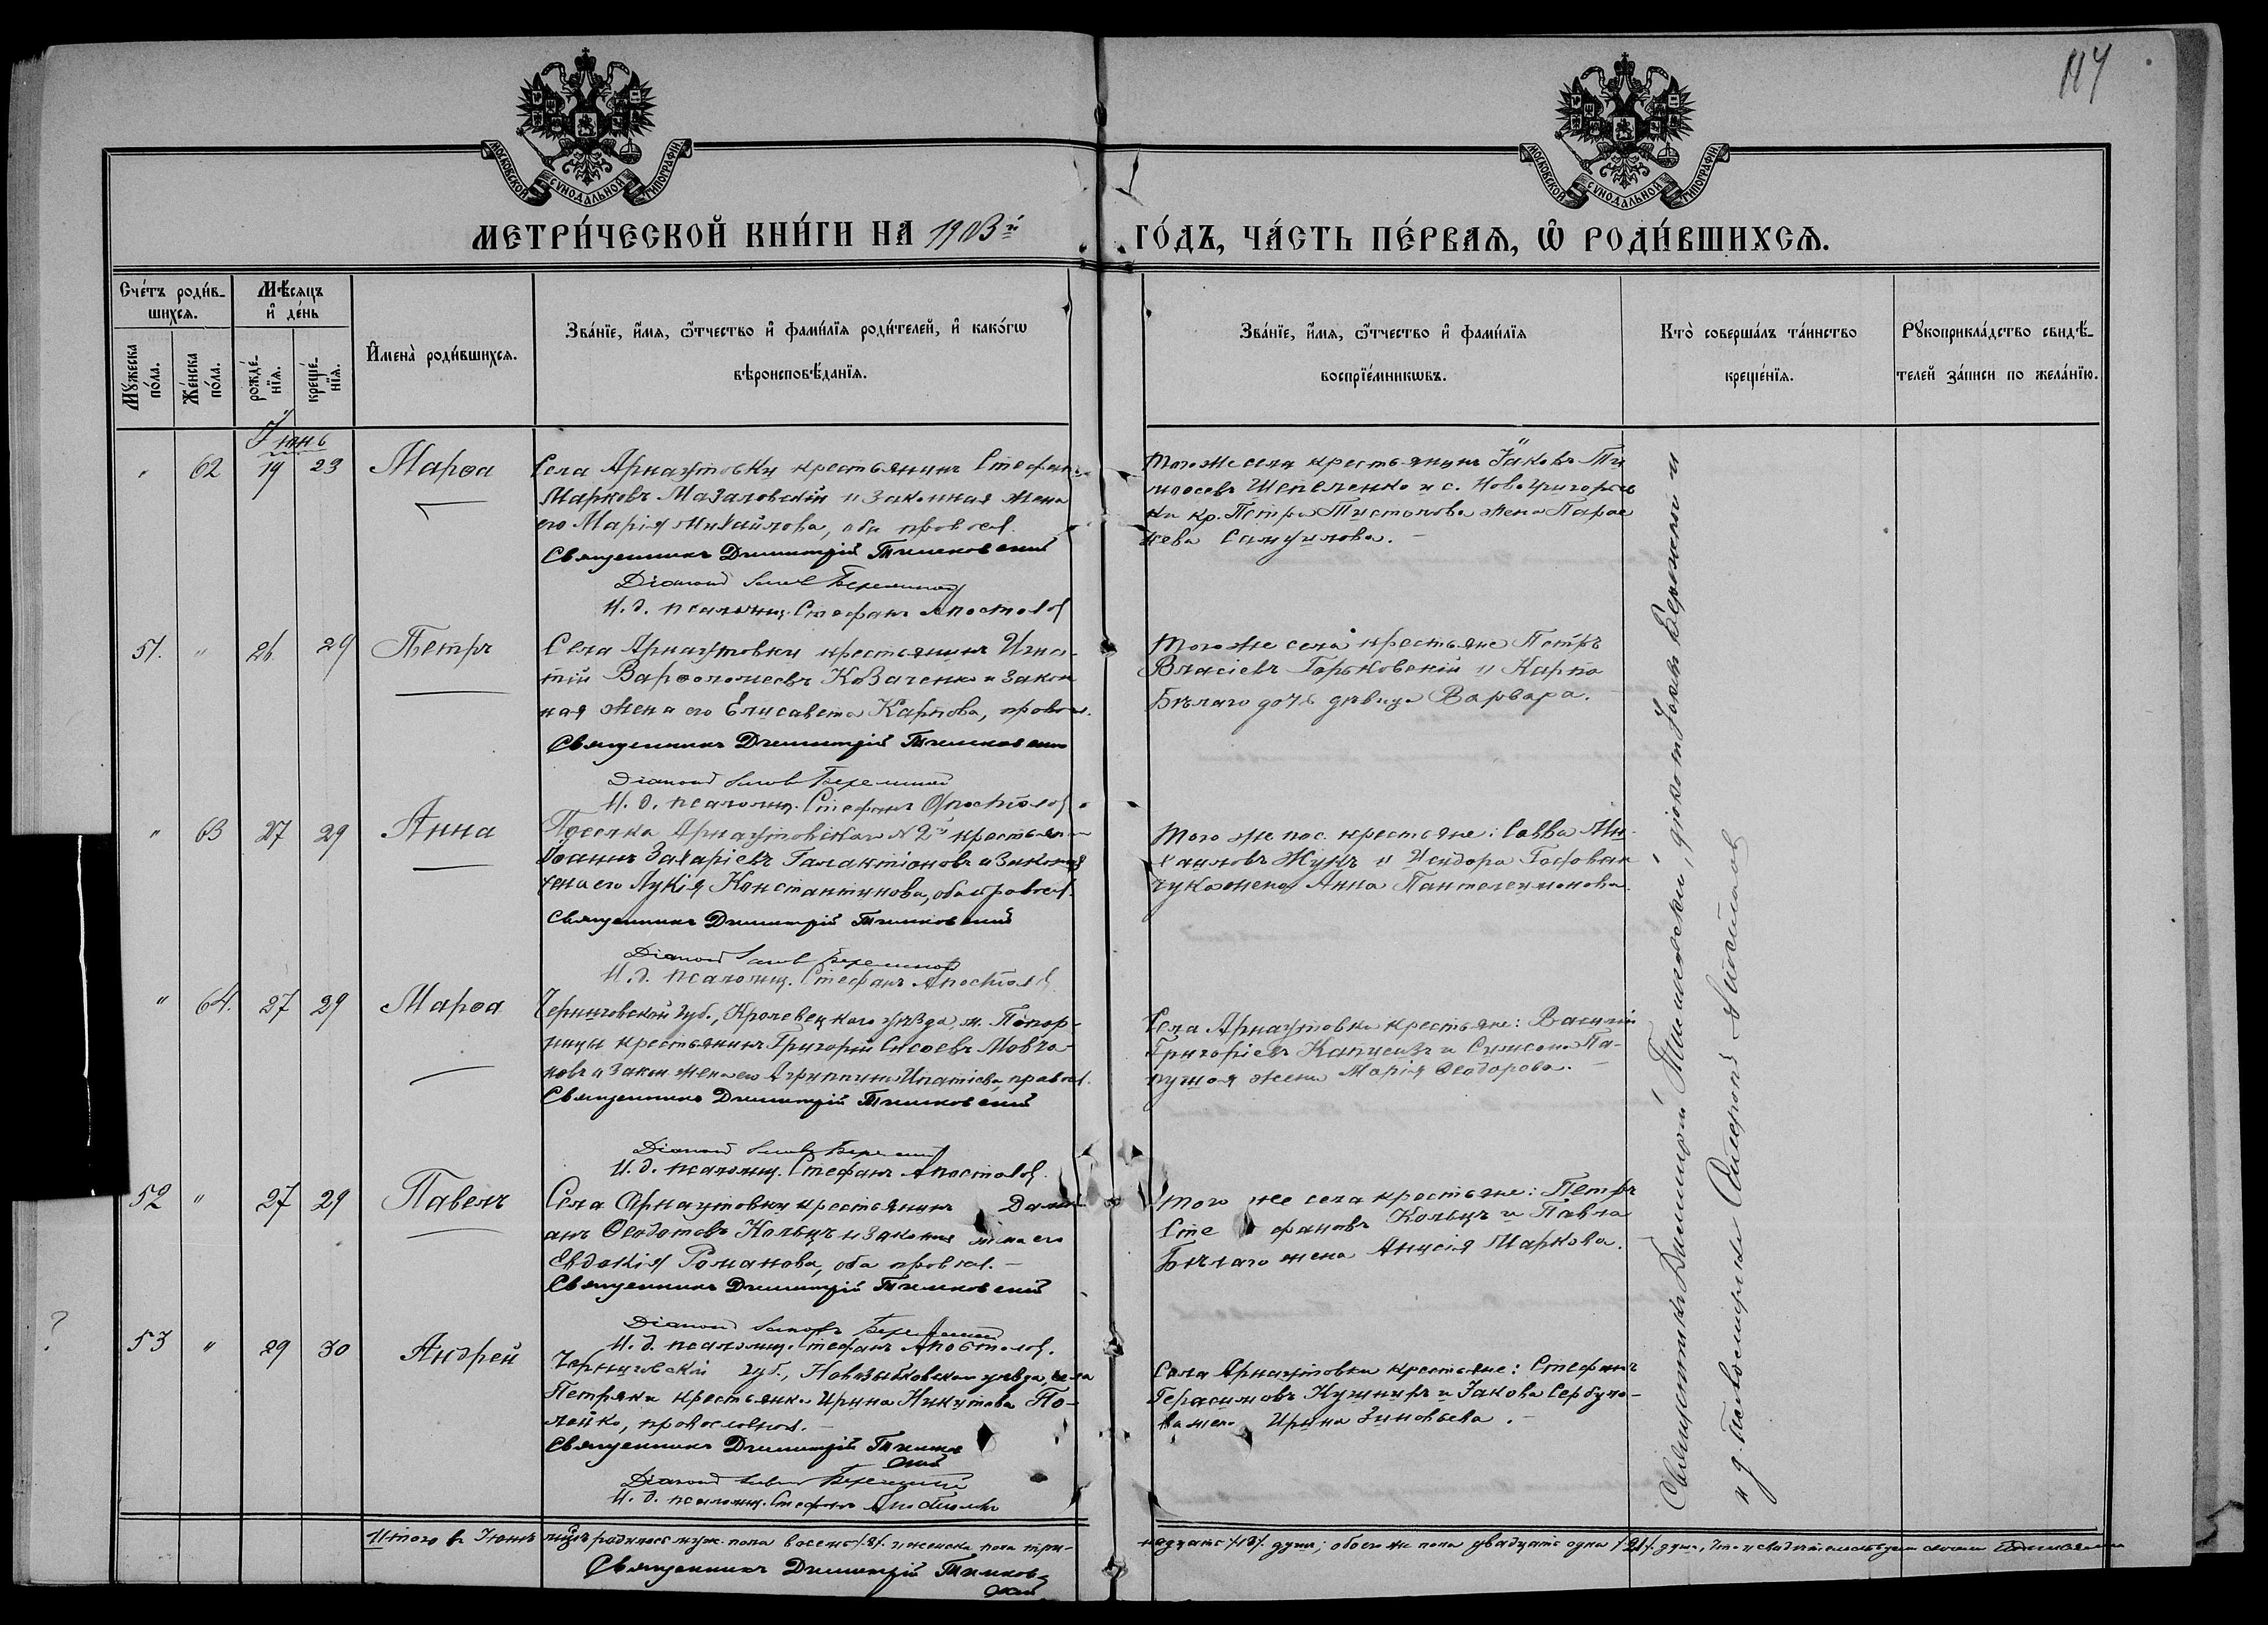 114
МОСКОВСКОЙ СѴНОДАЛЬНОЙ ТИПОГРАФІИ
МОСКОВСКОЙ СѴНОДАЛЬНОЙ ТИПОГРАФІИ
МЕТРИ́ЧЕСКОЙ КНИ́ГИ НА 1903й ГО́ДЪ, ЧА́СТЬ ПЕ́РВАѦ, Ѡ҆ РОДИ́ВШИХСѦ.
Сче́тъ роди́в-
шихсѧ.
Мꙋжеска по́ла.
Же́нска по́ла.
Мѣ́сѧцъ
и҆ де́нь
рожде́-нїѧ.
креще́-нїѧ.
И҆мена̀ роди́вшихсѧ.
Зва́нїе, и҆́мѧ, ѻ҆́тчество и҆ фами́лїѧ роди́телей, и҆ како́гѡ
вѣроисповѣ́данїѧ.
Зва́нїе, и҆́мѧ, ѻ҆́тчество и҆ фами́лїѧ
воспрїе́мникѡвъ.
Кто̀ соверша́лъ та́инство
креще́нїѧ.
Рꙋкоприкла́дство свидѣ́-
телей за́писи по жела́нїю.
Іюнь
" 62 19 23 Марѳа
Села Арнаутовки крестьянинъ Стефанъ
Марковъ Мазаловскій и законная жена
его Марія Михайлова, оба правосл.
Священникъ Димитрій Тимковскій
Діаконъ Іаковъ Бережной
И. д. псаломщ. Стефанъ Апостолов
Того же села крестьянинъ Іаковъ Ти
моѳеевъ Шепеленко и с. Новогригорьев
ки кр. Петра Тистолова жена Парас
кева Самуилова.
51. " 26 29 Петръ
Села Арнаутовки крестьянинъ Игна-
тій Варѳоломеевъ Козаченко и закон
ная жена его Елисавета Карпова, правосл.
Священникъ Димитрій Тимковскій
Діаконъ Іаковъ Бережной
И. д. псаломщ. Стефанъ Апостолов
Того же села крестьяне Петръ
Власіевъ Горьковскій и Карпа
Бѣлаго дочь дѣвица Варвара.
" 63 27 29 Анна
Поселка Арнаутовскаго № 2й крестьянинъ
Іоаннъ Захаріевъ Галактіоновъ и законная
жена его Лукія Константинова, оба правосл.
Священникъ Димитрій Тимковскій
Діаконъ Іаковъ Бережной
И. д. псаломщ. Стефанъ Апостолов
Того же пос. крестьяне: Савва Ми-
хаиловъ Жукъ и Исидора Гофован
чука жена Анна Пантелеимонова
" 64. 27 29 Марѳа
Черниговской губ., Кролевецкаго уѣзда, м. Понор-
ницы крестьянинъ Григорій Сисоевъ Мовча-
новъ и закон. жена его Агрипина Ипатіева, правосл.
Священникъ Димитрій Тимковскій
Діаконъ Іаковъ Бережной
И. д. псаломщ. Стефанъ Апостолов
Села Арнаутовки крестьяне: Василій
Григоріевъ Капусизъ и Симеона Па-
пушоя жена Марія Ѳеодорова.
52 " 27 29 Павелъ
Села Арнаутовки крестьянинъ Дами-
анъ Ѳеодотовъ Кольцъ и законная жена его
Евдокія Романова, оба правосл.
Священникъ Димитрій Тимковскій
Діаконъ Іаковъ Бережной
И. д. псаломщ. Стефанъ Апостолов.
Того же села крестьяне: Петръ
Стефановъ Кольцъ и Павла
Бѣлаго жена Анисія Маркова.
?
53 " 29 30 Андрей
Черниговской губ., Новозыбковскаго уѣзда, села
Петряки крестьянка Ирина Никитова По-
лейко, православная.
Священникъ Димитрій Тимков
скій
Діаконъ Іаковъ Бережной
И. д. псаломщ. Стефанъ Апостоловъ
Села Арнаутовки крестьяне: Стефанъ
Герасимовъ Кушниръ и Іакова Сербуло-
ва жена Ирина Зиновьева.
Священникъ Димитрій Тимковскій, діаконъ Іаковъ Бережной и
и д. псаломщика Стефанъ Апостоловъ
Итого въ Іюнѣ мцѣ родилось муж. пола восемь /8/. и женска пола три-
надцать /13/. душъ; обоего же пола двадцать одна /21/. душа, что и свидѣтельствуемъ своимъ подписомъ
Священникъ Димитрій Тимков-
скій